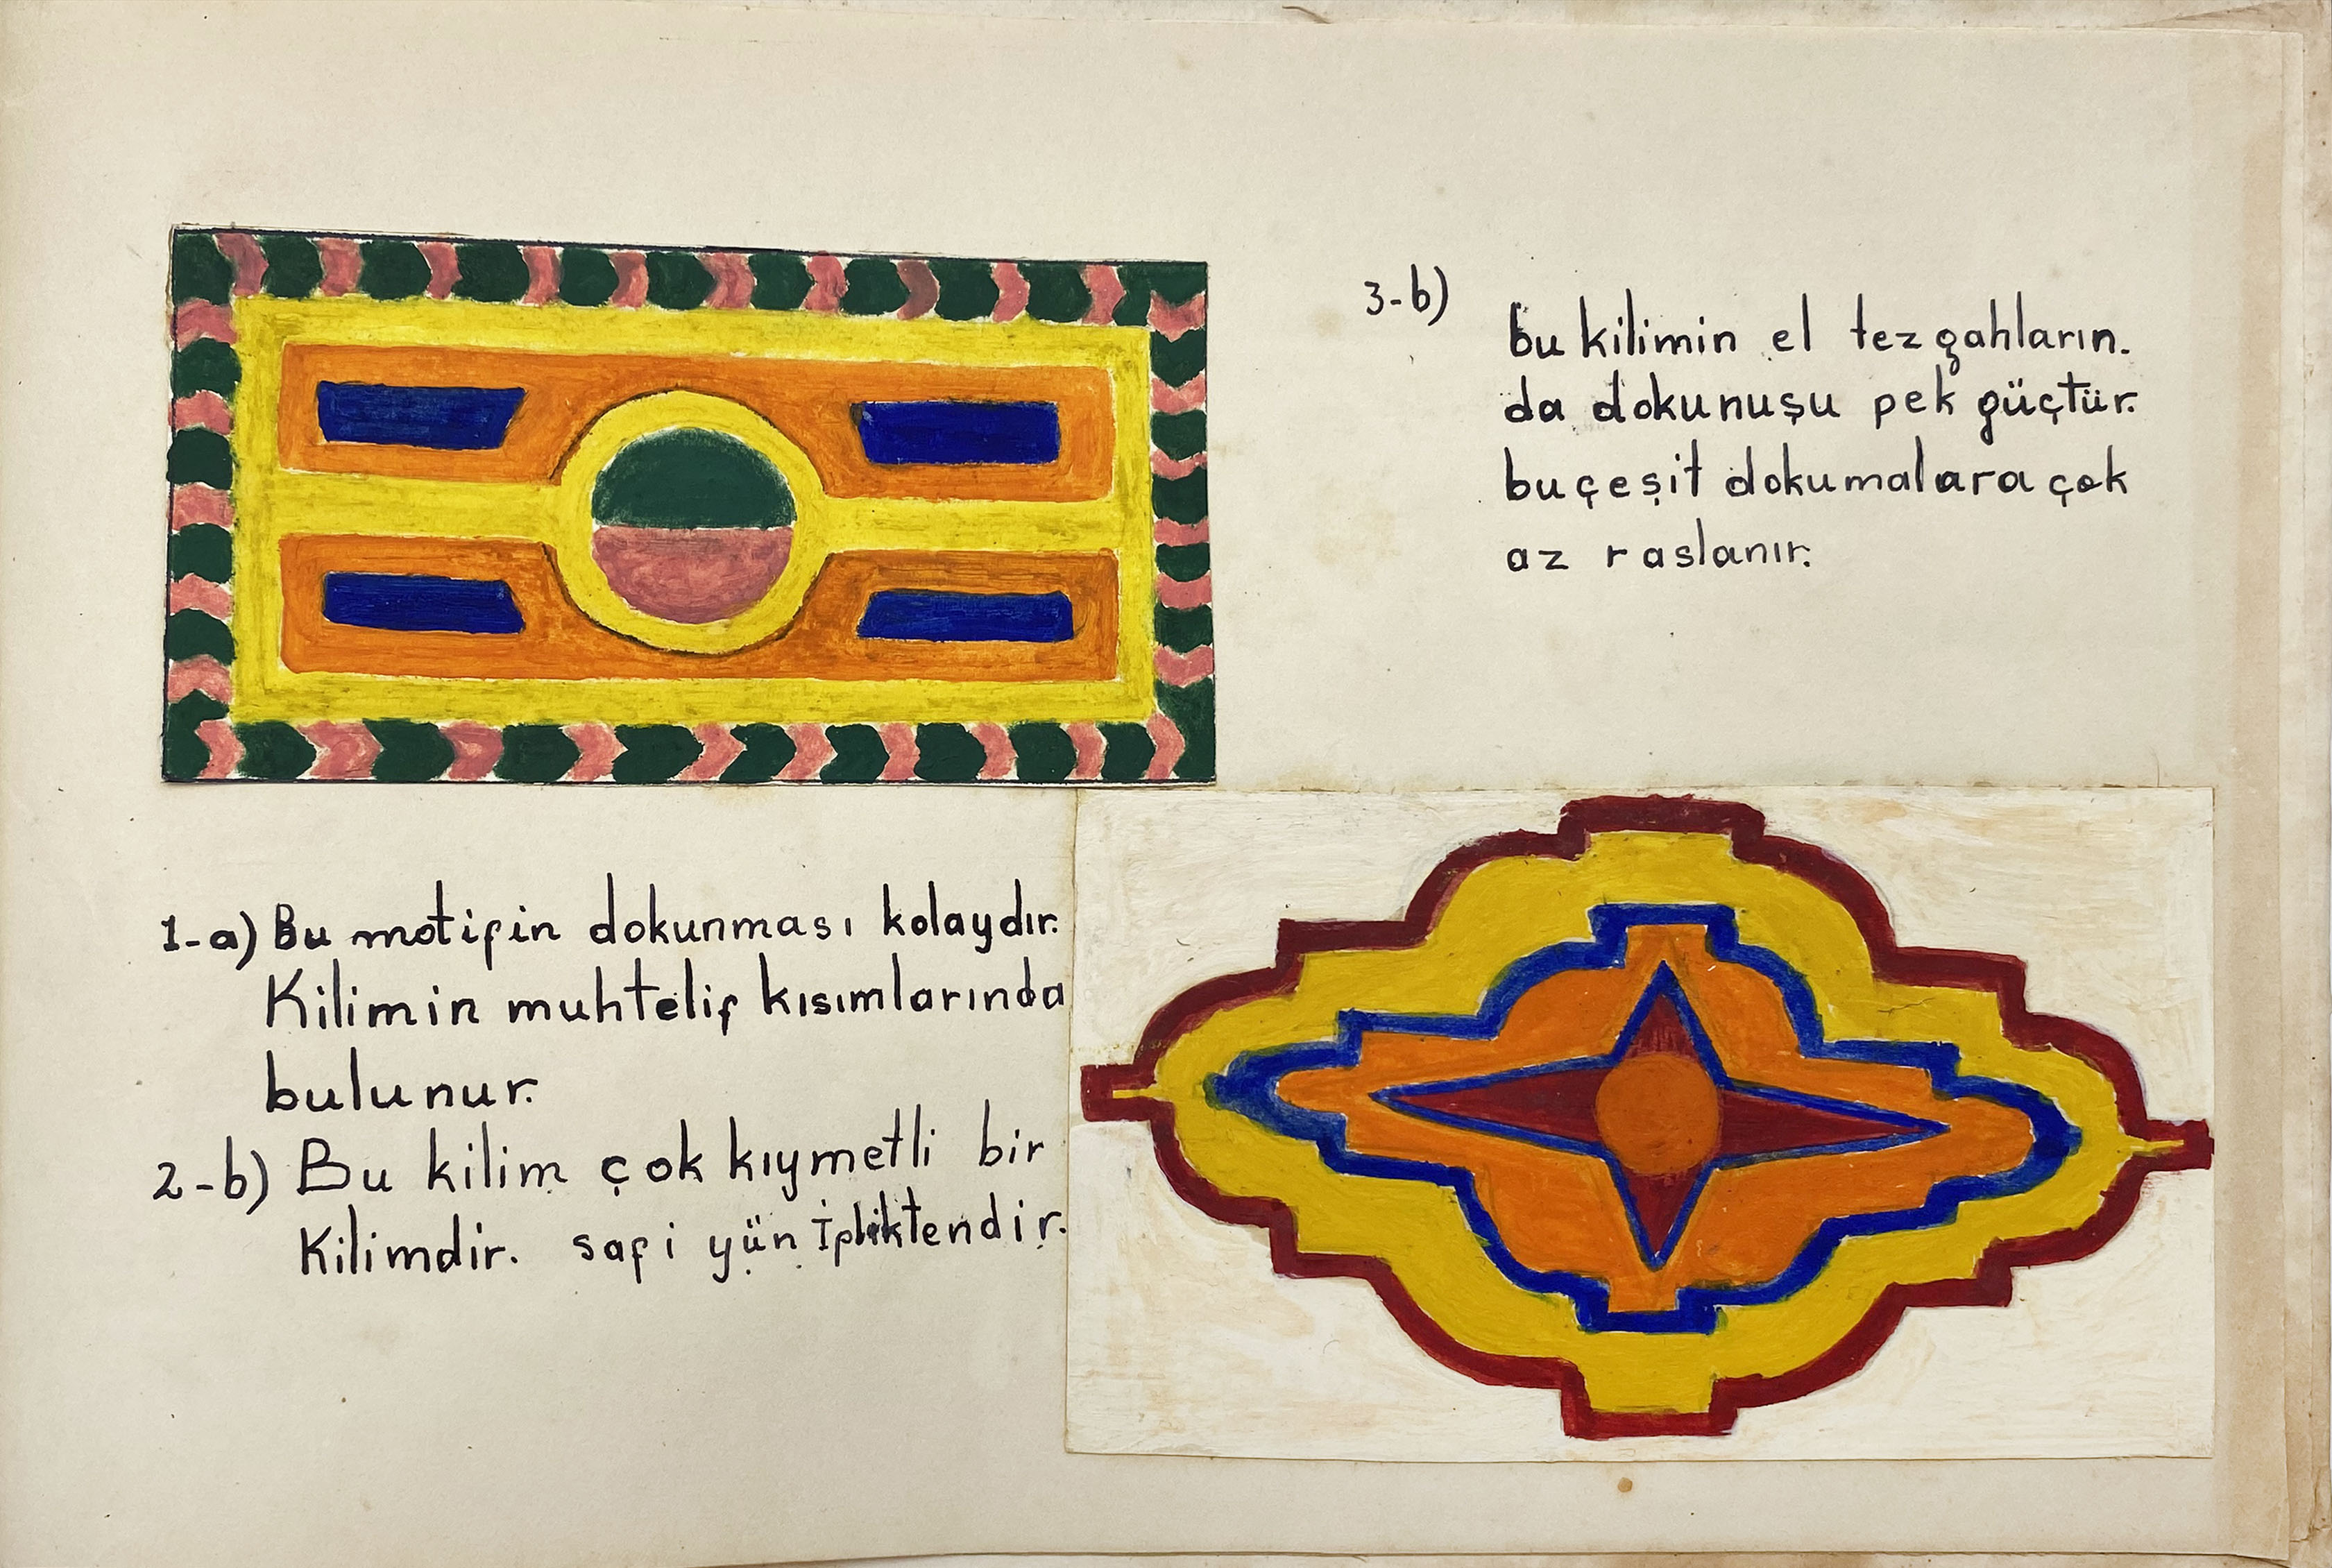 3-b)
bu kilimin el tezgahların.
da dokunuşu pek güçtür.
bu çeşit dokumalara çok
az raslanır.
1-a) Bu motifin dokunması kolaydır.
Kilimin muhtelif kısımlarında
bulunur.
2-b) Bu kilim çok kıymetli bir
Kilimdir. safi yün İpliktendir.